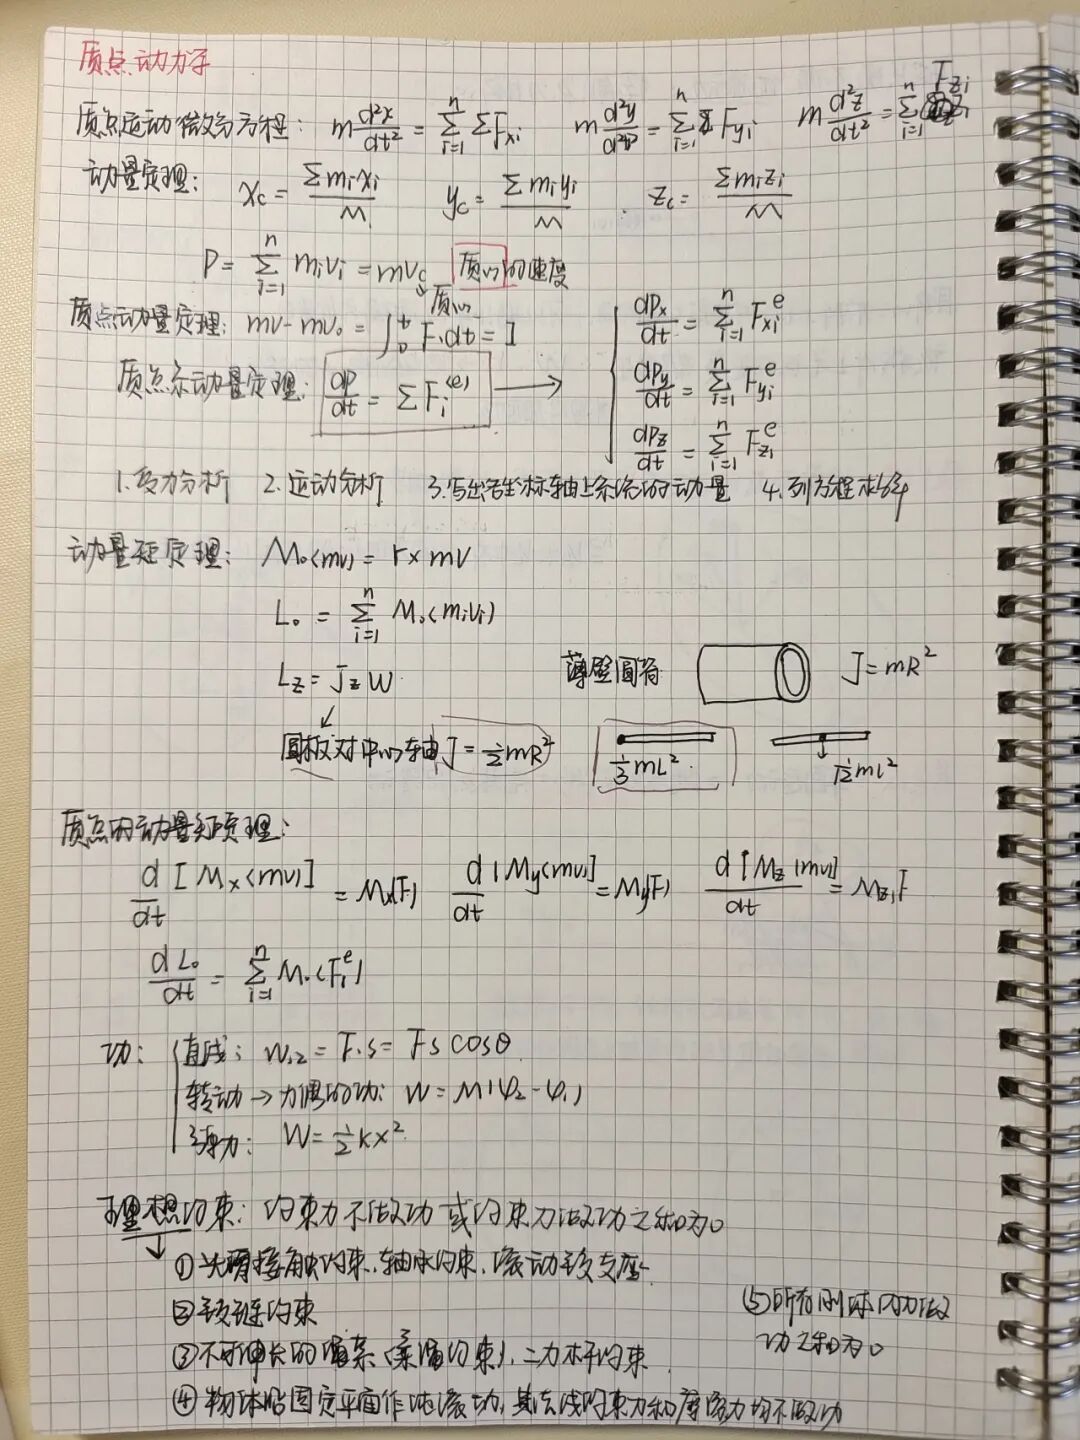 质点动力学
质点运动微分方程: m d²x/dt² = Σ_{i=1}^{n} ΣF_{xi}  m d²y/d²t² = Σ_{i=1}^{n} F_{yi}  m d²z/dt² = Σ_{i=1}^{n} F_{zi}
动量定理: x_c = Σm_i x_i / M  y_c = Σm_i y_i / M  z_c = Σm_i z_i / M
P = Σ_{i=1}^{n} m_i v_i = mv_c 质心的速度
质心
质点动量定理: mv - mv₀ = ∫_0^t F·dt = I
质点系动量定理: dP/dt = ΣF_i^{(e)} →
dP_x/dt = Σ_{i=1}^{n} F_{xi}^e
dP_y/dt = Σ_{i=1}^{n} F_{yi}^e
dP_z/dt = Σ_{i=1}^{n} F_{zi}^e
1.受力分析 2.运动分析 3.写出各坐标轴上系统的动量 4.列方程求解
动量矩定理: M₀(mv) = r×mv
L₀ = Σ_{i=1}^{n} M₀(m_i v_i)
L_z = J_z W
薄壁圆筒 J = mR²
圆板对中心轴 J = ½mR² ⅓mL² 1/12 ml²
质点的动量矩定理:
d[M_x(mv)]/dt = M_x(F) d[M_y(mv)]/dt = M_y(F) d[M_z(mv)]/dt = M_z(F
dL₀/dt = Σ_{i=1}^{n} M₀(F_i^e)
功: 直线: W₁₂ = F·s = Fs cosθ
转动→力偶的功: W = M(φ₂-φ₁)
弹力: W = ½kx²
理想约束: 约束力不做功或约束力做功之和为0
①光滑接触约束、轴承约束、滚动铰支座
②铰链约束
③不可伸长的绳索(柔绳约束)、二力杆约束
④物体沿固定平面作纯滚动,其法线约束力和摩擦力均不做功
(5)所有刚体内力做
功之和为0